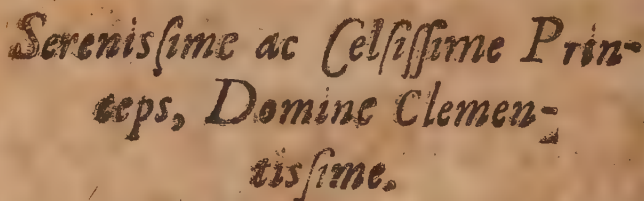 Serenisſime ac Celſiſſime Prin-
ceps, Domine Clemen-
tisſime.